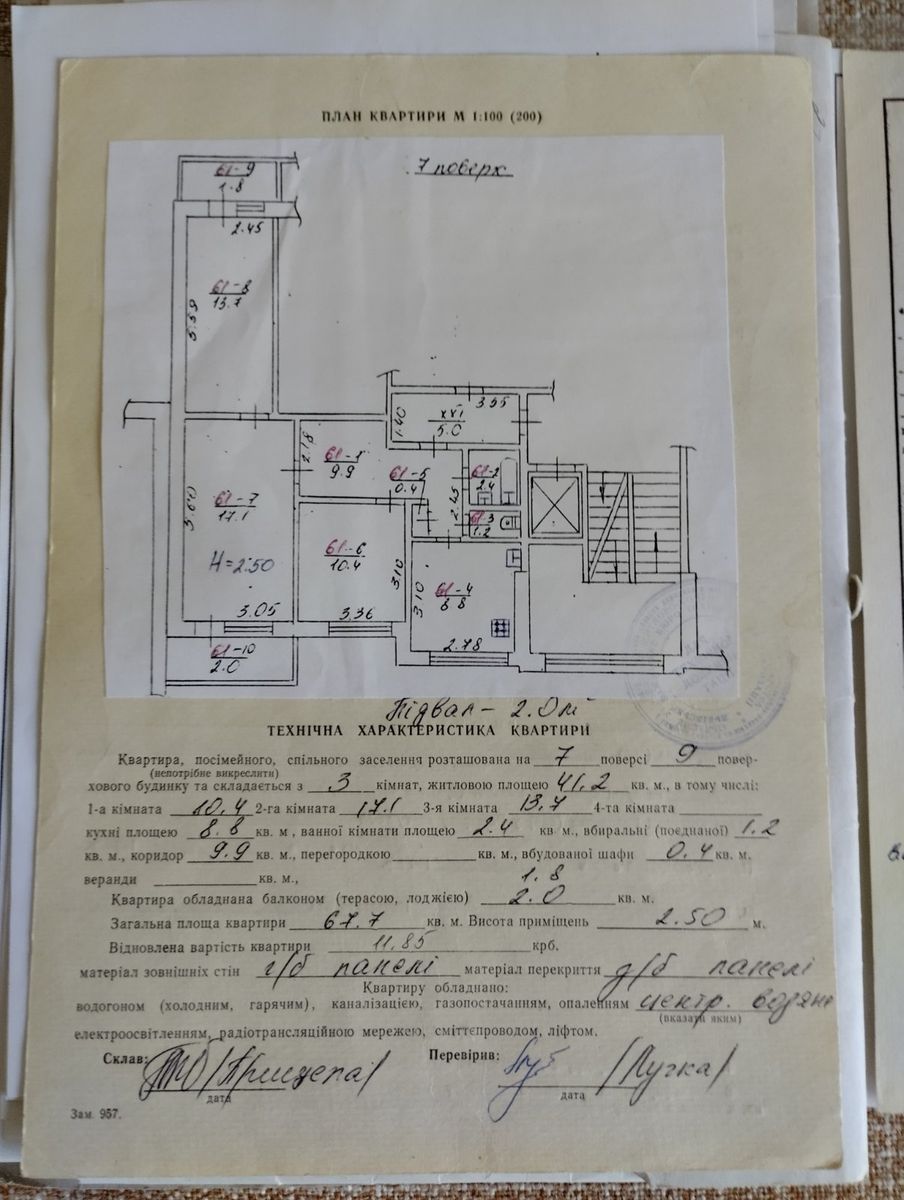 ПЛАН КВАРТИРИ М 1:100 (200)
7 поверх
61-9
1.8
2.45
61-8
13.7
5.59
3.55
1.40
XVI
5.0
2.18
61-1
9.9
61-5
0.4
61-2
2.4
2.45
61-3
1.2
5.60
61-7
17.1
61-6
10.4
3.10
H=2.50
61-4
8.8
3.10
3.05
3.36
2.78
61-10
2.0
Підвал - 2.0
ТЕХНІЧНА ХАРАКТЕРИСТИКА КВАРТИРИ
Квартира, посімейного, спільного заселення розташована на 7 поверсі 9 повер-
(непотрібне викреслити)
хового будинку та складається з 3 кімнат, житловою площею 41,2 кв. м., в тому числі:
1-а кімната 10.4 2-га кімната 17.1 3-я кімната 13.7 4-та кімната
кухні площею 8.8 кв. м , ванної кімнати площею 2.4 кв. м., вбиральні (поєднаної) 1.2
кв. м., коридор 9.9 кв. м., перегородкою кв. м., вбудованої шафи 0.4 кв. м.
веранди кв. м., 1.8
Квартира обладнана балконом (терасою, лоджією) 2.0 кв. м.
Загальна площа квартири 67.7 кв. м. Висота приміщень 2.50 м.
Відновлена вартість квартири 11.85 крб.
матеріал зовнішніх стін панелі матеріал перекриття панелі
Квартиру обладнано:
водогоном (холодним, гарячим), каналізацією, газопостачанням, опаленням центр.
(вказати яким)
електроосвітленням, радіотрансляційною мережею, сміттєпроводом, ліфтом.
Склав: Перевірив:
дата дата
Зам. 957.